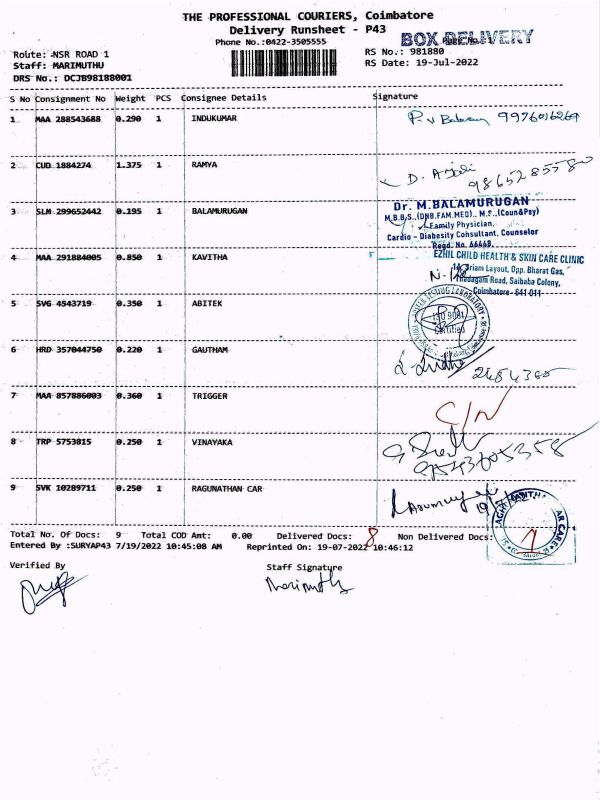 THE PROFESSIONAL COURIERS, Coimbatore
Delivery Runsheet - P43
Phone No.:0422-3505555
BOX DELIVERY
Route: NSR ROAD 1
RS No.: 981880
Staff: MARIMUTHU
RS Date: 19-Jul-2022
DRS No.: DCJB98188001
S No Consignment No Weight PCS Consignee Details Signature
1 MAA 288543688 0.290 1 INDUKUMAR
2 CUD 1884274 1.375 1 RAMYA
D. Anjali 9865285580
3 SLM 299652442 0.195 1 BALAMURUGAN
Dr. M.BALAMURUGAN
M.B.B.S.,(DNB.FAM.MED)., M.S.,(Coun&Psy)
Family Physician,
Cardio - Diabesity Consultant, Counselor
Regd. No. 66448.
4 MAA 291884005 0.850 1 KAVITHA
EZHIL CHILD HEALTH & SKIN CARE CLINIC
Layout, Opp. Bharat Gas,
Road, Saibaba Colony,
Coimbatore- 641 011
5 SVG 4543719 0.350 1 ABITEK
ISO 9001
Certified
6 HRD 357044750 0.220 1 GAUTHAM
7 MAA 857886003 0.360 1 TRIGGER
C/N
8 TRP 5753815 0.250 1 VINAYAKA
9 SVK 10289711 0.250 1 RAGUNATHAN CAR
CAR CARE
Total No. Of Docs: 9 Total COD Amt: 0.00 Delivered Docs: 8 Non Delivered Docs: 1
Entered By :SURYAP43 7/19/2022 10:45:08 AM Reprinted On: 19-07-2022 10:46:12
Verified By
Staff Signature
Marimuthu